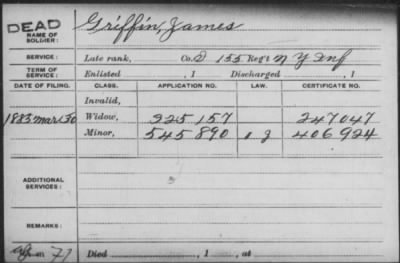 DEAD
NAME OF SOLDIER: Griffin, James
SERVICE: Late rank, Co. D 155 Reg't N Y Inf
TERM OF SERVICE: Enlisted , 1 Discharged , 1
DATE OF FILING. CLASS. APPLICATION NO. LAW. CERTIFICATE NO.
Invalid,
1883 Mar 30 Widow, 225157 247047
Minor, 545890 406924
ADDITIONAL SERVICES:
REMARKS:
71 Died , 1 , at